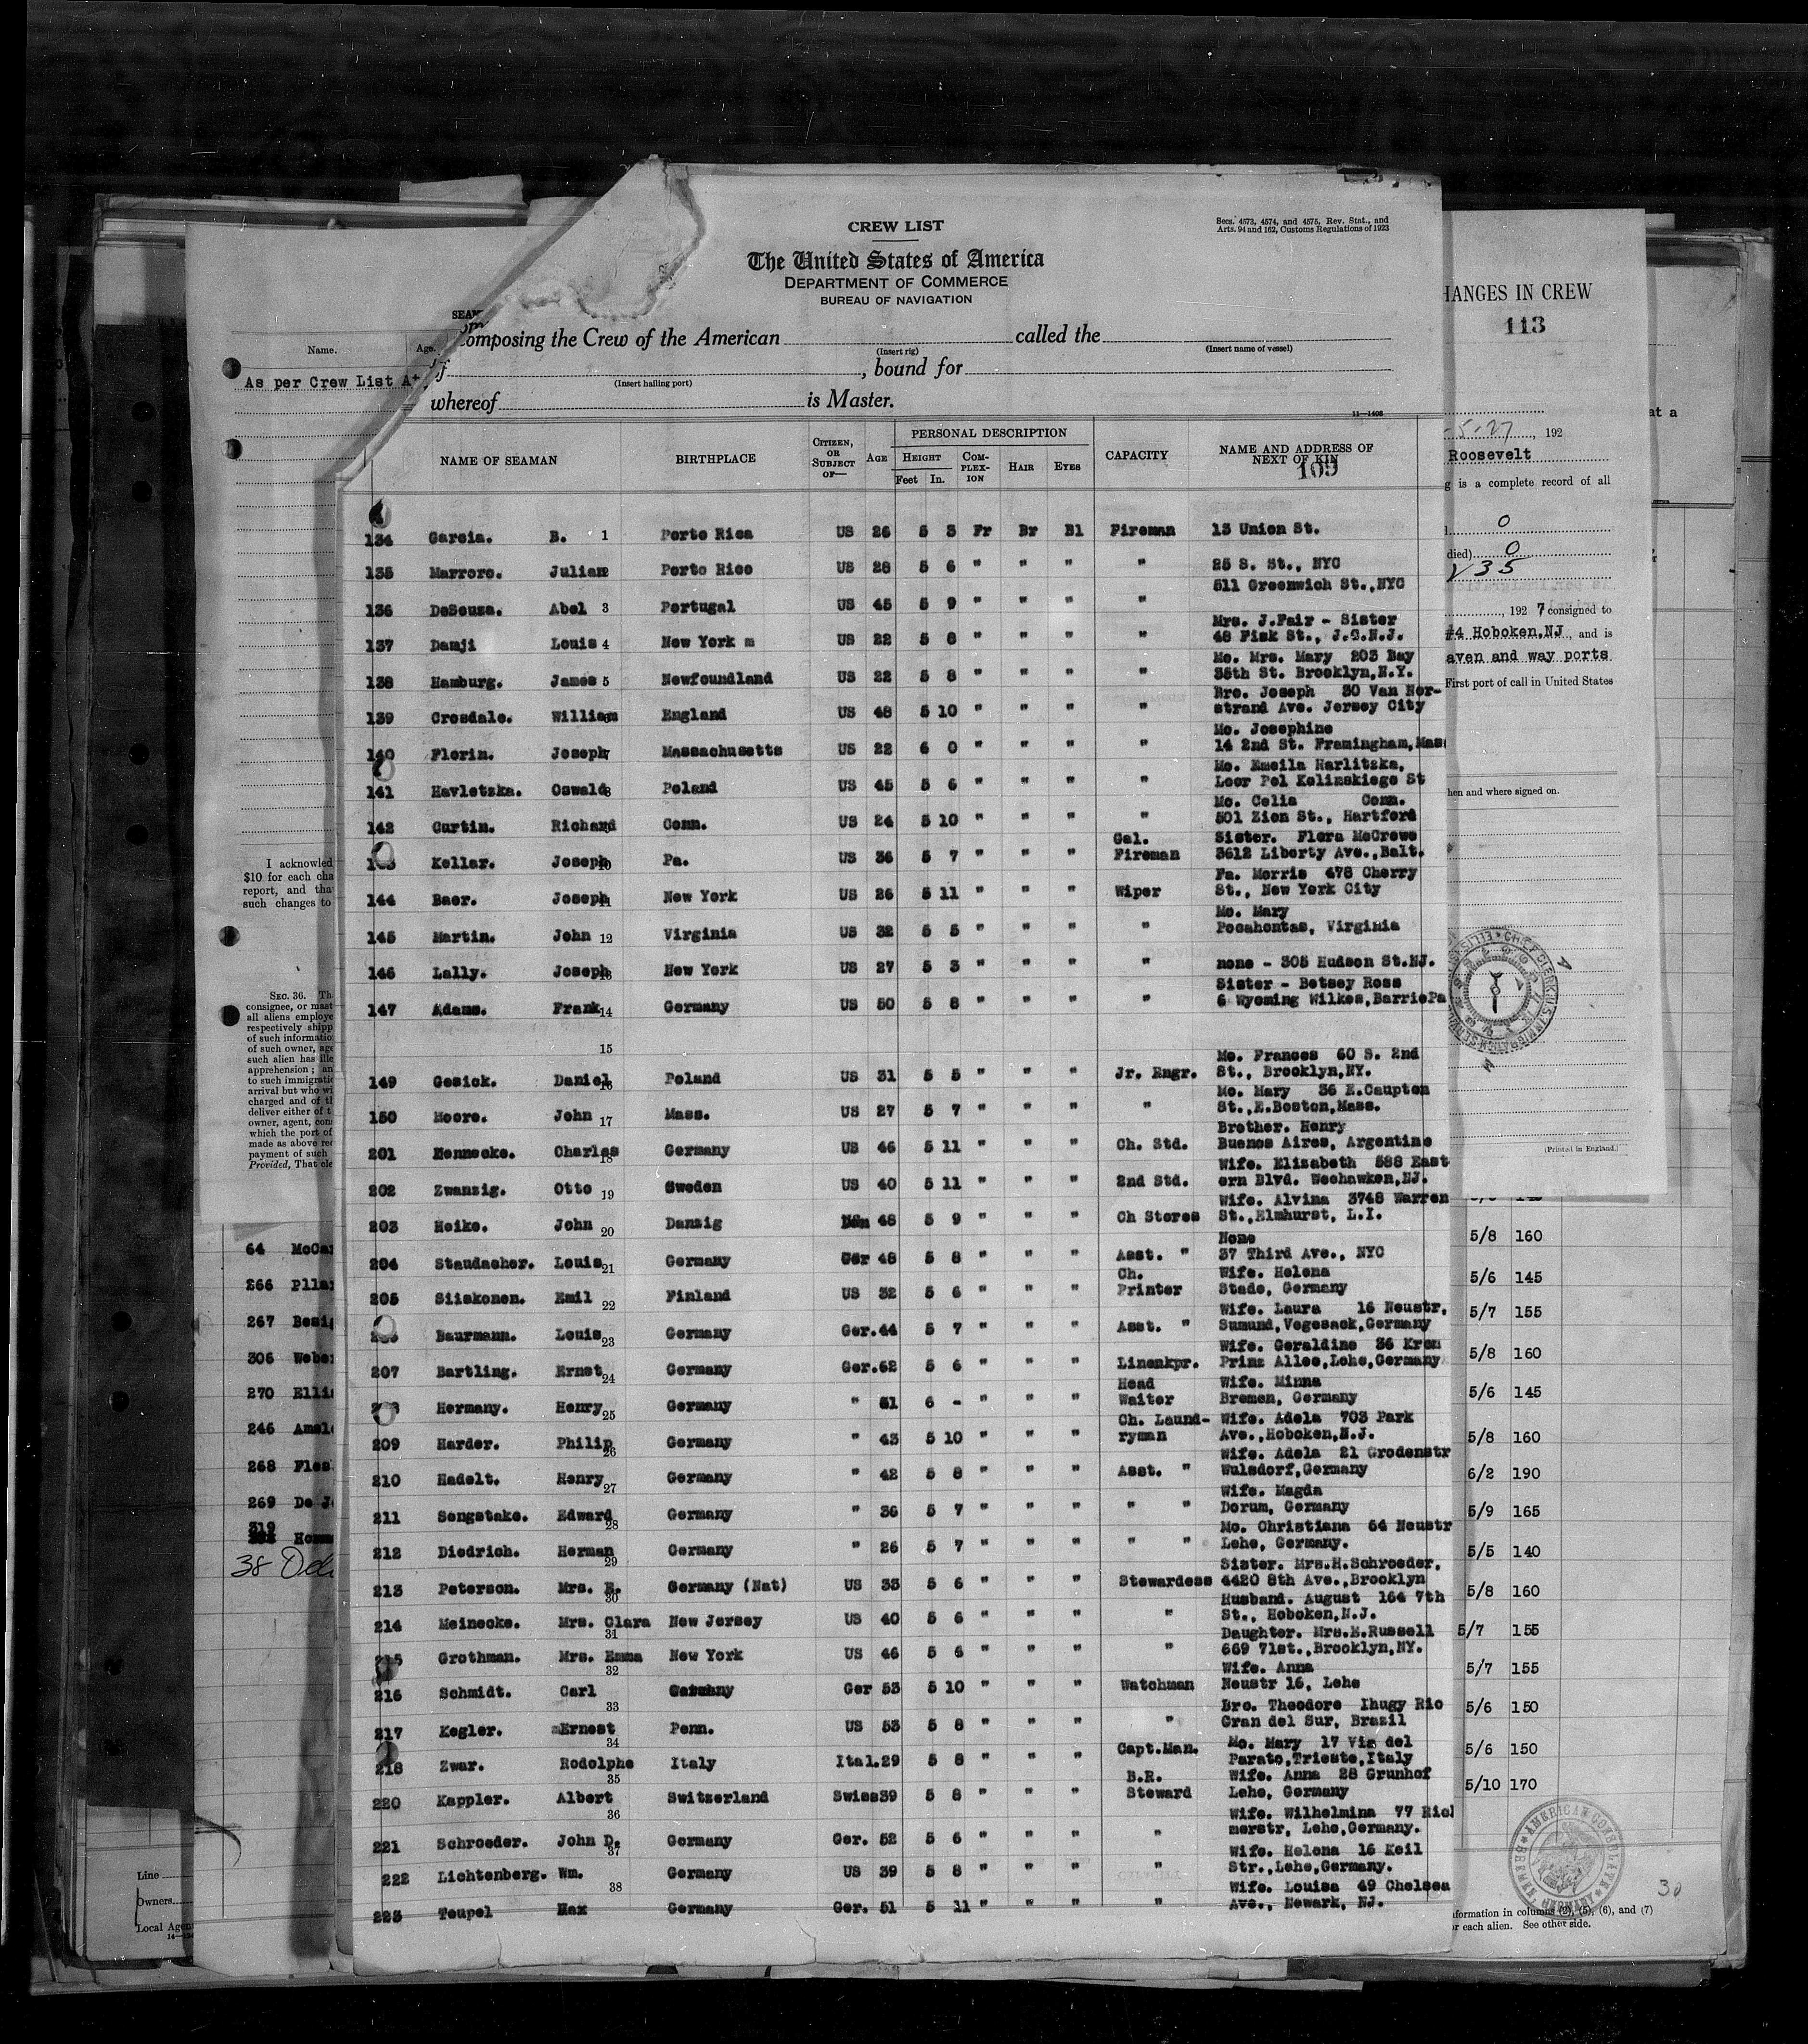 CREW LIST
Secs. 4573, 4574, and 4575, Rev. Stat., and
Arts. 94 and 162, Customs Regulations of 1923
The United States of America
DEPARTMENT OF COMMERCE
BUREAU OF NAVIGATION
composing the Crew of the American called the
(Insert rig) (Insert name of vessel)
of , bound for
(Insert hailing port)
whereof is Master.
11—1408
NAME OF SEAMAN BIRTHPLACE CITIZEN, OR SUBJECT OF— AGE PERSONAL DESCRIPTION CAPACITY NAME AND ADDRESS OF NEXT OF KIN
HEIGHT COM-PLEX-ION HAIR EYES
Feet In.
109
134 Garcia. B. 1 Porto Rica US 26 5 3 Fr Br Bl Fireman 13 Union St.
135 Marrero. Julian 2 Porto Rico US 28 5 6 " " " " 25 S. St., NYC
511 Greenwich St.,NYC
136 DeSouza. Abel 3 Portugal US 45 5 9 " " " "
Mrs. J.Fair - Sister
137 Damji Louis 4 New York m US 22 5 8 " " " " 48 Fisk St., J.C.N.J.
Mo. Mrs. Mary 203 Bay
138 Hamburg. James 5 Newfoundland US 22 5 8 " " " " 35th St. Brooklyn,N.Y.
Bro. Joseph 30 Van Nor-
139 Crosdale. William 6 England US 48 5 10 " " " " strand Ave. Jersey City
Mo. Josephine
140 Florin. Joseph 7 Massachusetts US 22 6 0 " " " " 14 2nd St. Framingham,Mass
Mo. Emeila Harlitzka,
141 Havletzka. Oswald 8 Poland US 45 5 6 " " " " Leer Pol Kolinskiego St
Mo. Celia Conn.
142 Curtin. Richard 9 Conn. US 24 5 10 " " " " 501 Zion St., Hartford
Gal. Sister. Flora McCrowe
Kellar. Joseph 10 Pa. US 36 5 7 " " " Fireman 3612 Liberty Ave.,Balt.
Fa. Morris 478 Cherry
144 Baer. Joseph 11 New York US 26 5 11 " " " Wiper St., New York City
Mo. Mary
145 Martin. John 12 Virginia US 32 5 5 " " " " Pocahontas, Virginia
146 Lally. Joseph 13 New York US 27 5 3 " " " " none - 305 Hudson St.NJ.
Sister - Betsey Ross
147 Adams. Frank 14 Germany US 50 5 8 " " " " 6 Wyoming Wilkes,BarriePa
15
Mo. Frances 60 S. 2nd
149 Gesick. Daniel 16 Poland US 31 5 5 " " " Jr. Engr. St., Brooklyn,NY.
Mo. Mary 36 E.Caupton
150 Moore. John 17 Mass. US 27 5 7 " " " " St.,E.Boston,Mass.
Brother. Henry
201 Hennecke. Charles 18 Germany US 46 5 11 " " " Ch. Std. Buenos Aires, Argentine
Wife. Elizabeth 588 East
202 Zwanzig. Otto 19 Sweden US 40 5 11 " " " 2nd Std. ern Blvd. Weehawken,NJ.
Wife. Alvina 3748 Warren
203 Heike. John 20 Danzig 48 5 9 " " " Ch Stores St.,Elmhurst, L.I.
None
204 Staudacher. Louis 21 Germany Ger 48 5 8 " " " Asst. " 37 Third Ave., NYC
Ch. Wife. Helena
205 Siiskonen. Emil 22 Finland US 32 5 6 " " " Printer Stade, Germany
Wife. Laura 16 Neustr,
Baurmann. Louis 23 Germany Ger. 44 5 7 " " " Asst. " Sumund,Vegesack,Germany
Wife. Geraldine 36 Kron
207 Bartling. Ernst 24 Germany Ger. 52 5 6 " " " Linenkpr. Prinz Allee,Lehe,Germany
Head Wife. Minna
Hermany. Henry 25 Germany " 51 6 - " " " Waiter Bremen, Germany
Ch. Laund- Wife. Adela 703 Park
209 Harder. Philip 26 Germany " 43 5 10 " " " ryman Ave.,Hoboken,N.J.
Wife. Adela 21 Grodenstr
210 Hadelt. Henry 27 Germany " 42 5 8 " " " Asst. " Wulsdorf,Germany
Wife. Magda
211 Sengstake. Edward 28 Germany " 36 5 7 " " " " " Dorum, Germany
Mo. Christiana 64 Neustr
212 Diedrich. Herman 29 Germany " 26 5 7 " " " " " Lehe, Germany.
Sister. Mrs.H.Schroeder,
213 Peterson. Mrs. E. 30 Germany (Nat) US 33 5 6 " " " Stewardess 4420 8th Ave.,Brooklyn
Husband. August 164 7th
214 Meinecke. Mrs. Clara 31 New Jersey US 40 5 6 " " " " St., Hoboken,N.J.
Daughter. Mrs.E.Russell
215 Grothman. Mrs. Emma 32 New York US 46 5 6 " " " " 669 71st.,Brooklyn,NY.
Wife. Anna
216 Schmidt. Carl 33 Germany Ger 53 5 10 " " " Watchman Neustr 16, Lehe
Bro. Theodore Ihugy Rio
217 Kegler. Ernest 34 Penn. US 53 5 8 " " " " Gran del Sur, Brazil
Mo. Mary 17 Via del
218 Zwar. Rodolphe 35 Italy Ital. 29 5 8 " " " Capt.Man. Parato,Trieste,Italy
B.R. Wife. Anna 28 Grunhof
220 Kappler. Albert 36 Switzerland Swiss 39 5 8 " " " Steward Lehe, Germany
Wife. Wilhelmina 77
221 Schroeder. John D. 37 Germany Ger. 52 5 6 " " " " merstr, Lehe,Germany.
Wife. Helena 16 Keil
222 Lichtenberg. Wm. 38 Germany US 39 5 8 " " " " Str.,Lehe,Germany.
Wife. Louisa 49 Chelsea
223 Teupel Max Germany Ger. 51 5 11 " " " " Ave., Newark, NJ.
Name. Age.
As per Crew List
I acknowled
$10 for each cha
report, and tha
such changes to
SEC. 36. Th
consignee, or mast
all aliens employe
respectively shipp
of such informatio
of such owner, age
such alien has ille
apprehension; an
to such immigratio
arrival but who wi
charged and of th
deliver either of t
owner, agent, con
which the port of
made as above req
payment of such
Provided, That cle
64 McCa
266 Plla
267 Besi
306 Webe
270 Elli
246 Amel
268 Fles
269 De J
319
38
Line
Owners
Local Agen
HANGES IN CREW
113
at a
-5-27, 192
Roosevelt
g is a complete record of all
0
died) 0
V35
, 1927 consigned to
#4 Hoboken,NJ, and is
aven and way ports
First port of call in United States
hen and where signed on.
(Printed in England.)
5/8 160
5/6 145
5/7 155
5/8 160
5/6 145
5/8 160
6/2 190
5/9 165
5/5 140
5/8 160
5/7 155
5/7 155
5/6 150
5/6 150
5/10 170
AMERICAN CONSULATE
BREMEN GERMANY
30
formation in columns (2), (5), (6), and (7)
or each alien. See other side.